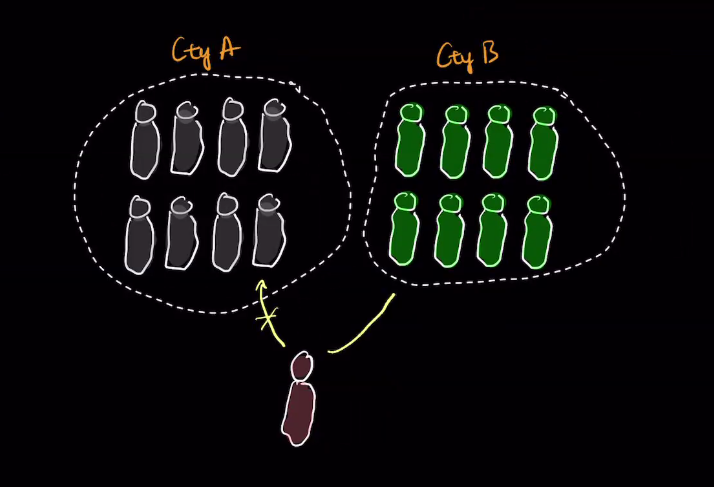 Cty A
Cty B